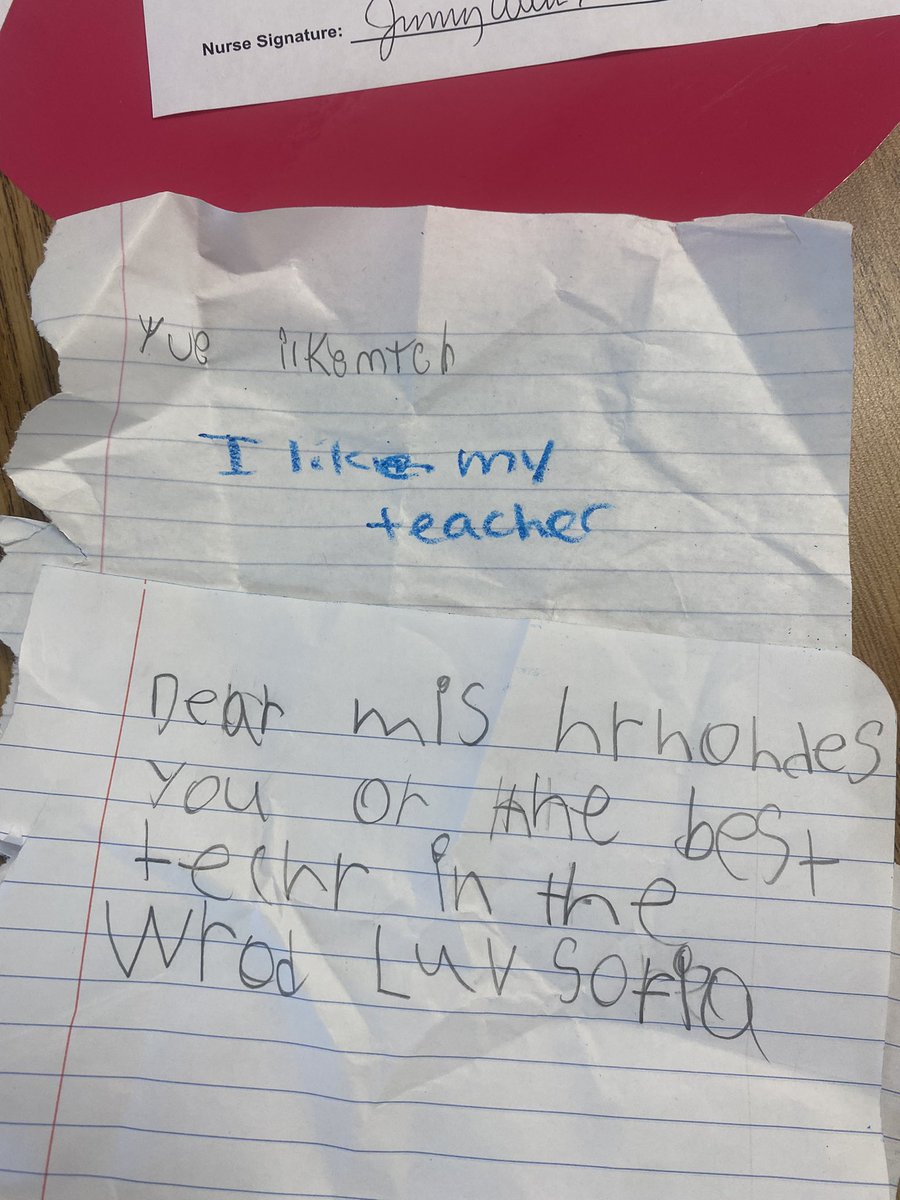 Nurse Signature: Jimmy
Yue ilkemtch
I like my
teacher
Dear mis hrhohdes
you or the best
techr in the
Wrod Luv Sofia